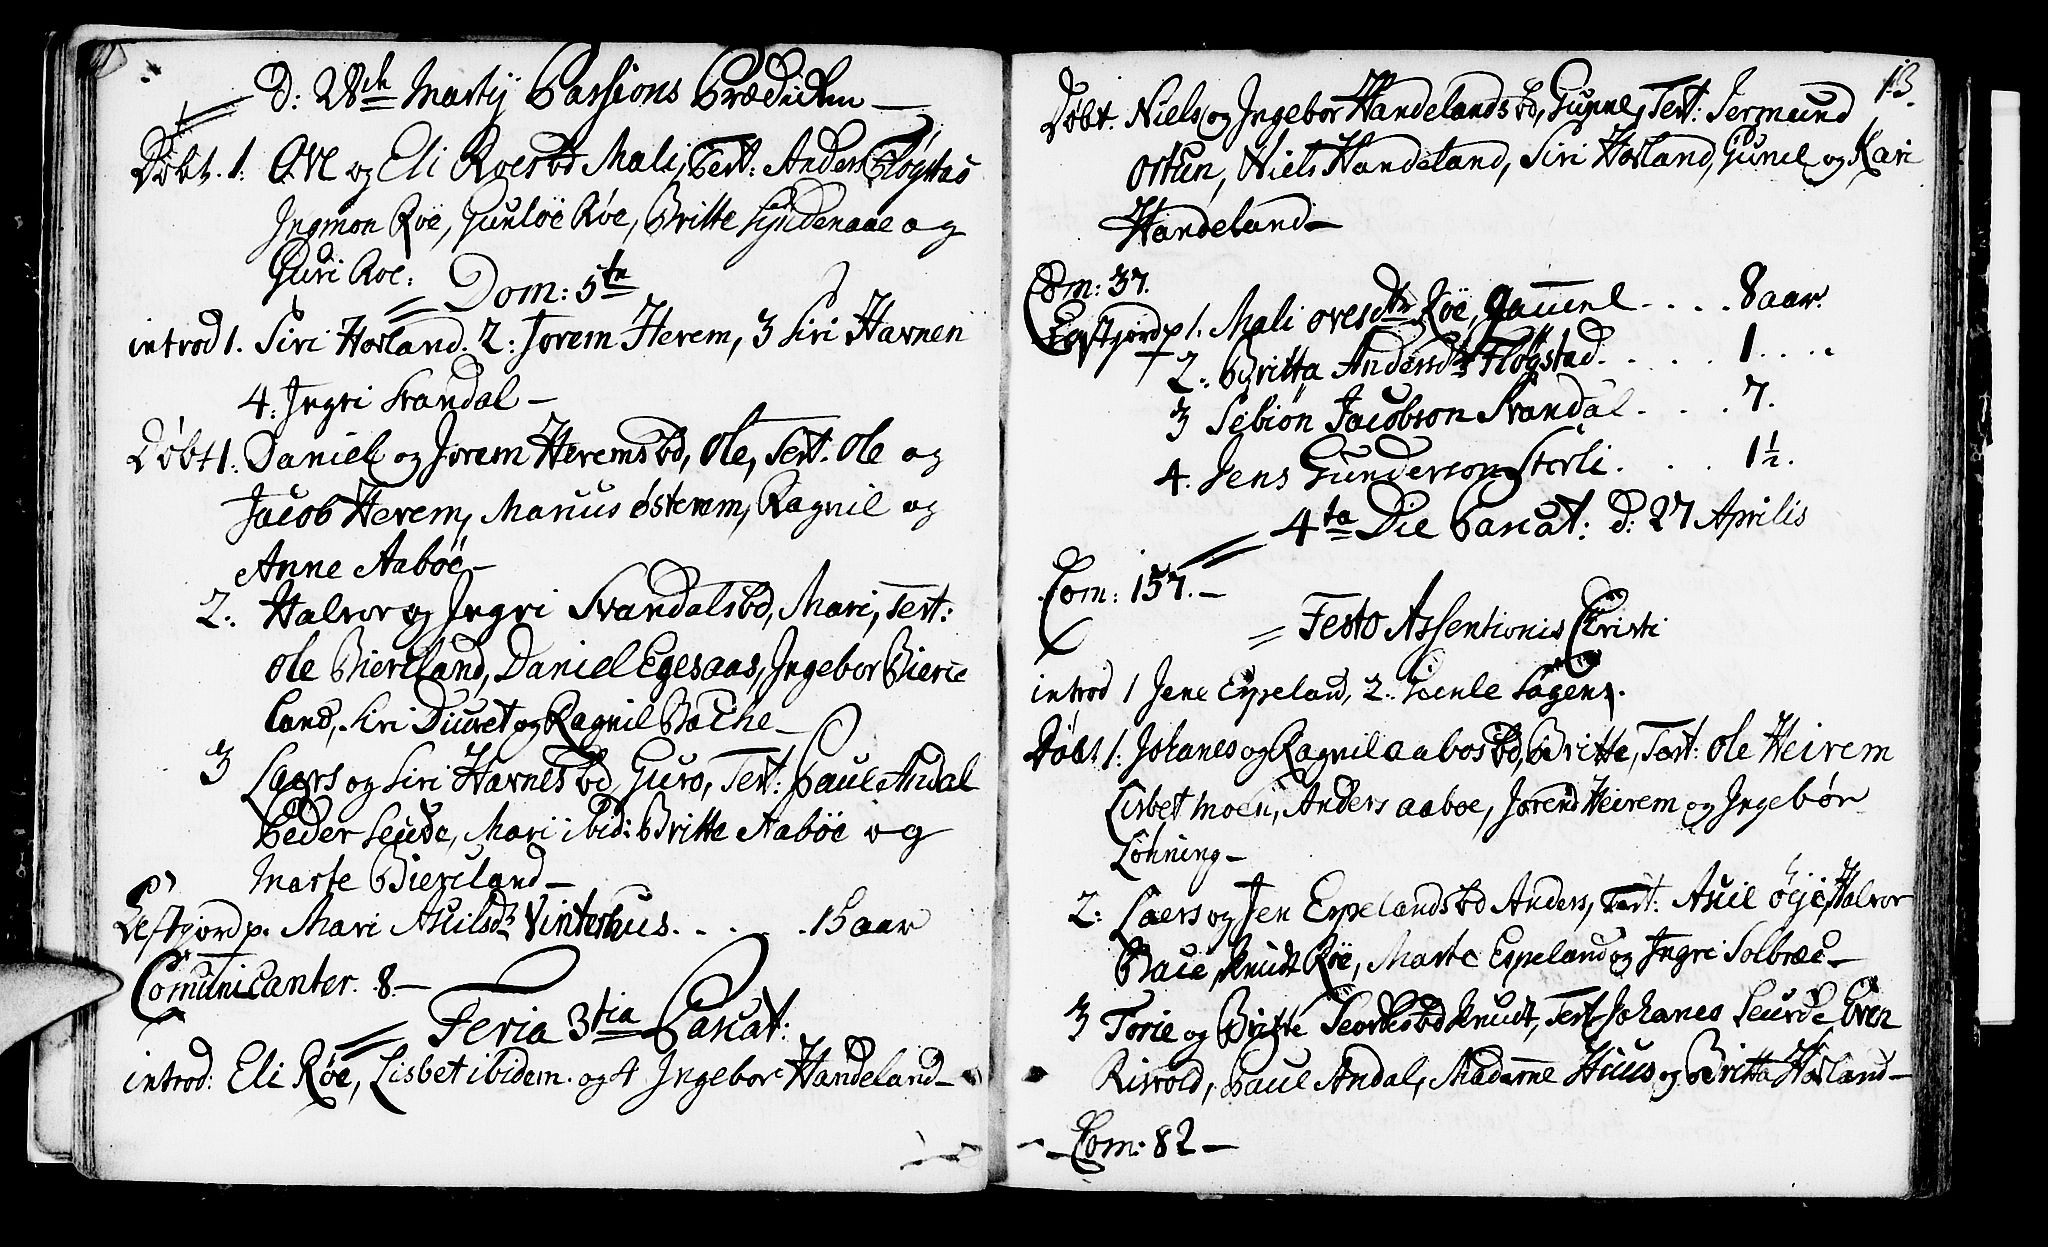 D: 28de Martij Passions Prædiken –
Døbt. 1: Ove og Eli Roesbd Mali, Test: Anders Fløgstad
Ingmon Røe, Gunløe Røe, Britte Lyndenaae og
Guri Roe:
Dom: 5te
introd 1. Siri Horland. 2: Jorem Herem, 3 Siri Havnen
4: Ingri Svandal –
Døbt 1: Daniel og Jorem Heremsbd, Ole, Test. Ole og
Jacob Herem, Marcus Østerem, Ragnil og
Anne Aabøe –
2: Halvor og Ingri Svandalsbd, Mari, Test:
Ole Biereland, Daniel Egesaas, Ingebor Biere
land, Siri Diuret og Ragnil Bache –
3 Laers og Siri Havnesbd, Guro, Test: Paul Andal
Peder Leurde, Mari ibid: Britte Aabøe og
Marte Biereland –
Lestjord p. Mari Asuilsdr Vinterhus. . . . . 15 aar
Comunicanter. 8. –
Feria 3tia Pascat:
introd: Eli Røe, Lisbet ibidem. og 4 Ingebor Handeland –
13.
Døbt. Niels og Ingebor Handelandsbd, Gunnel, Test: Jermund
Osten, Niels Handeland, Siri Horland, Gunel og Kari
Handeland –
Com: 37.
Lestjord p 1. Mali Ovesdtr Røe, gammel . . . . 8 aar.
2: Britta Andersdtr Fløgstad. . . . . 1 . . . .
3 Sebiøn Jacobson Svandal . . . . 7.
4. Jens Gunderson Sterli . . . . 1½.
4ta Die Pascat: d: 27 Aprilis
Com: 157. –
Festo Assentionis Christi
introd 1 Jene Espeland, 2: Sagen.
Døbt 1: Johanes og Ragnil Aabosbd, Britte, Test: Ole Heirem
Lisbet Moen, Anders Aaboe, Jorend Heirem og Ingebør
Løhning –
2: Laers og Jen Espelandsbd Anders, Test: Asuil Øije, Halvor
Baie, Knudt Røe, Marte Espeland og Ingri Solbræe –
3 Torie og Britte Knudt, Test Johanes Leurde Even
Risvold, Paul Andal, Madamme Huus og Britta Horland –
Com: 82 –